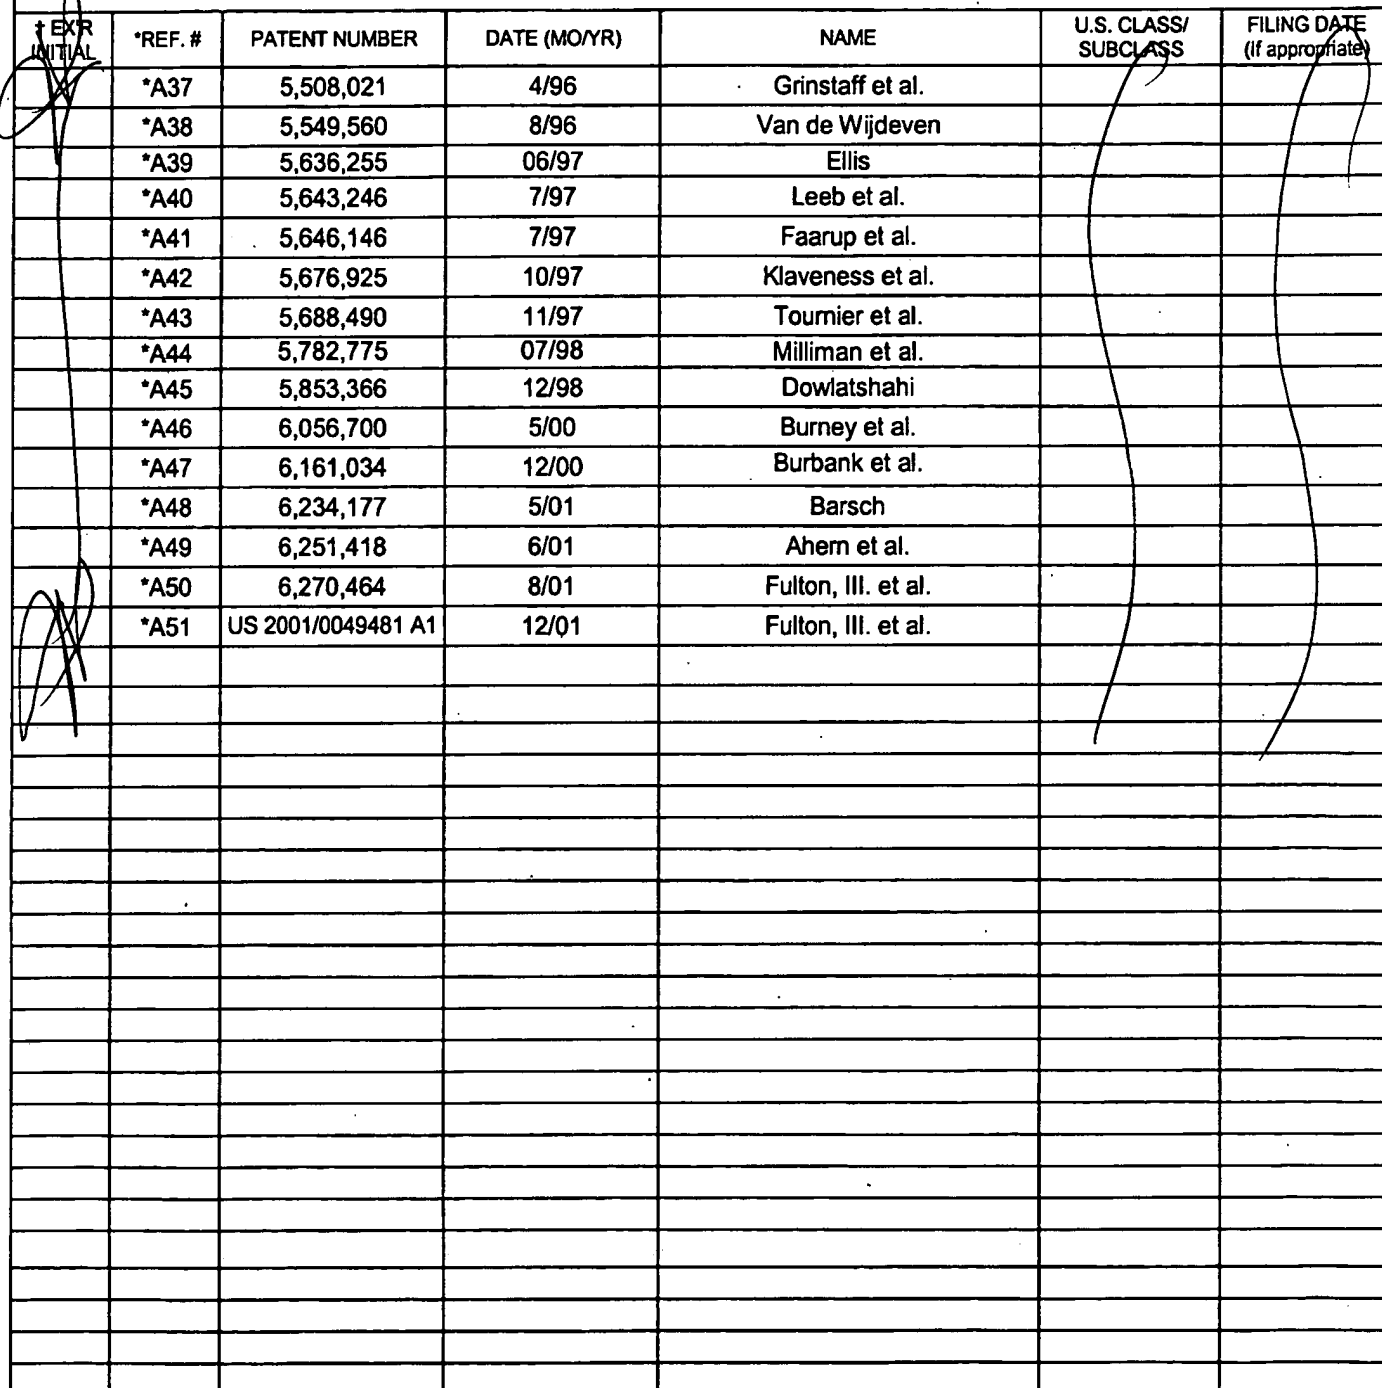 ‡ EX'R INITIAL *REF. # PATENT NUMBER DATE (MO/YR) NAME U.S. CLASS/ SUBCLASS FILING DATE (If appropriate)
*A37 5,508,021 4/96 Grinstaff et al.
*A38 5,549,560 8/96 Van de Wijdeven
*A39 5,636,255 06/97 Ellis
*A40 5,643,246 7/97 Leeb et al.
*A41 5,646,146 7/97 Faarup et al.
*A42 5,676,925 10/97 Klaveness et al.
*A43 5,688,490 11/97 Tournier et al.
*A44 5,782,775 07/98 Milliman et al.
*A45 5,853,366 12/98 Dowlatshahi
*A46 6,056,700 5/00 Burney et al.
*A47 6,161,034 12/00 Burbank et al.
*A48 6,234,177 5/01 Barsch
*A49 6,251,418 6/01 Ahern et al.
*A50 6,270,464 8/01 Fulton, III. et al.
*A51 US 2001/0049481 A1 12/01 Fulton, III. et al.